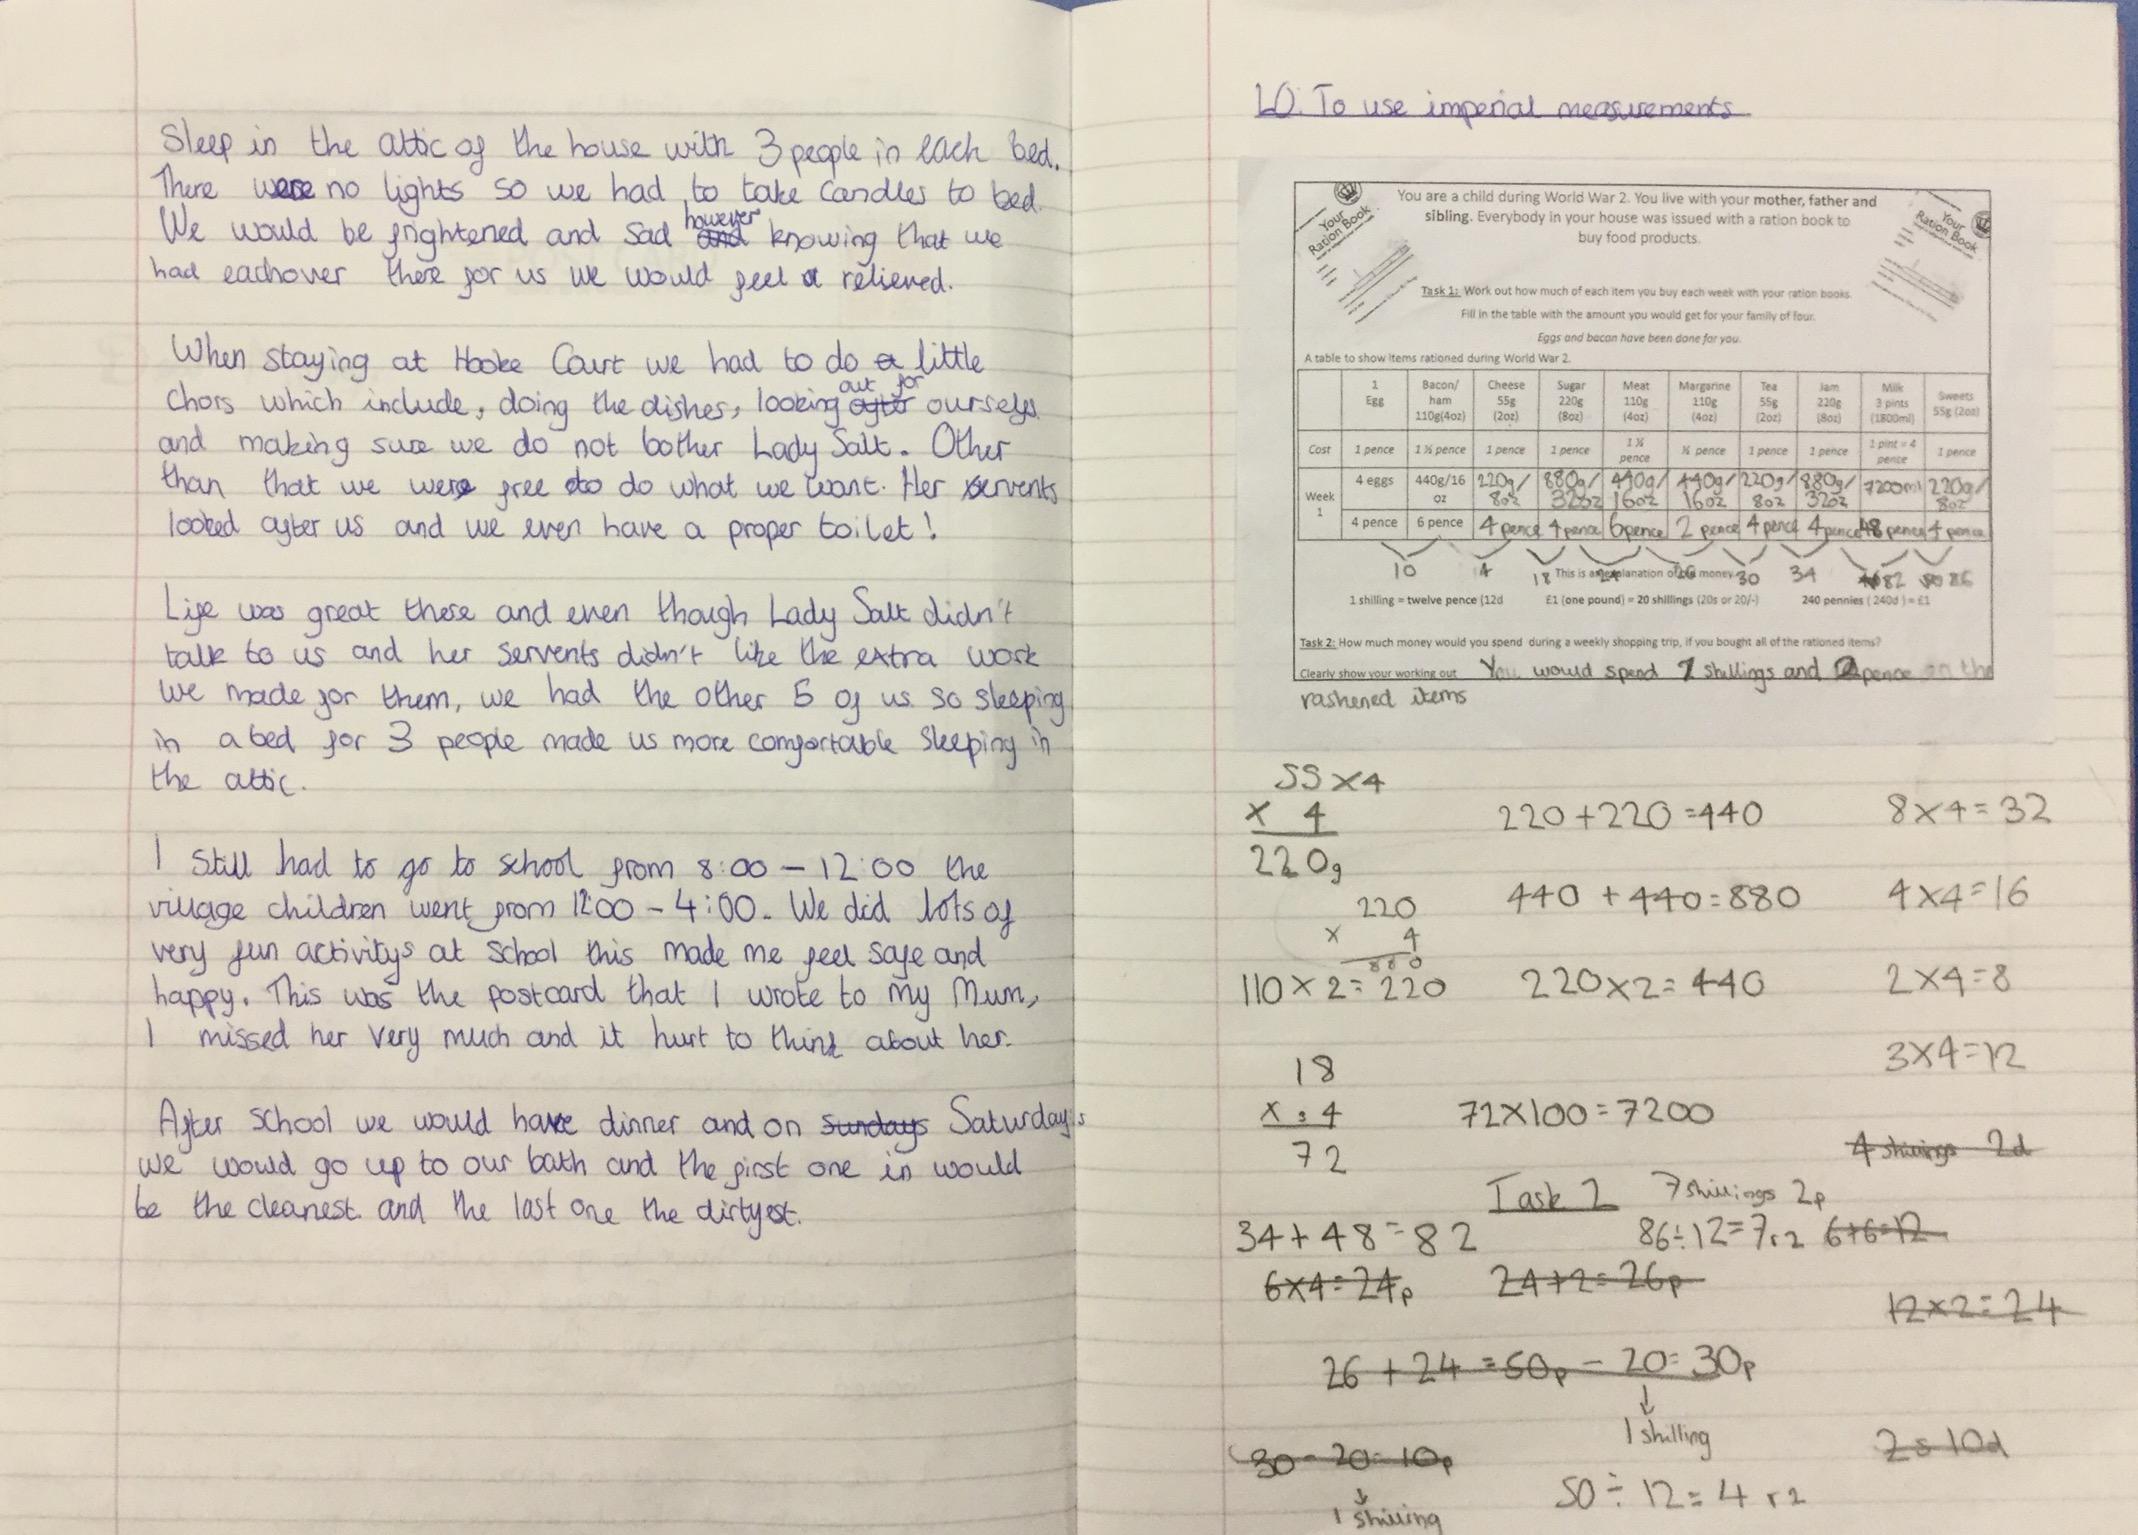 Sleep in the attic of the house with 3 people in each bed.
There were no lights so we had to take candles to bed.
We would be frightened and sad and however knowing that we
had eachover there for us we would feel a relieved.
When staying at Hooke Court we had to do a little
chors which include, doing the dishes, looking after out for ourselfs
and making sure we do not bother Lady Salt. Other
than that we were free to do what we want. Her servents
looked after us and we even have a proper toilet!
Life was great there and even though Lady Salt didn't
talk to us and her servents didn't like the extra work
we made for them, we had the other 5 of us so sleeping
in a bed for 3 people made us more comfortable sleeping in
the attic.
I still had to go to school from 8:00 - 12:00 the
village children went from 12:00 - 4:00. We did lots of
very fun activitys at school this made me feel safe and
happy. This was the postcard that I wrote to my Mum,
I missed her very much and it hurt to think about her.
After school we would have dinner and on Sundays Saturday's
we would go up to our bath and the first one in would
be the cleanest and the last one the dirtyest.
LO: To use imperial measurements
Your Ration Book
Your Ration Book
You are a child during World War 2. You live with your mother, father and
sibling. Everybody in your house was issued with a ration book to
buy food products.
Task 1: Work out how much of each item you buy each week with your ration books.
Fill in the table with the amount you would get for your family of four.
Eggs and bacon have been done for you.
A table to show items rationed during World War 2.
1 Egg Bacon/ham 110g(4oz) Cheese 55g (2oz) Sugar 220g (8oz) Meat 110g (4oz) Margarine 110g (4oz) Tea 55g (2oz) Jam 220g (8oz) Milk 3 pints (1800ml) Sweets 55g (2oz)
Cost 1 pence 1½ pence 1 pence 1 pence 1½ pence ½ pence 1 pence 1 pence 1 pint = 4 pence 1 pence
Week 1 4 eggs 440g/16 oz 220g/8oz 880g/32oz 440g/16oz 440g/16oz 220g/8oz 880g/32oz 7200ml 220g/8oz
4 pence 6 pence 4 pence 4 pence 6 pence 2 pence 4 pence 4 pence 48 pence 4 pence
10 14 18 24 26 30 34 82 86
This is an explanation of old money
1 shilling = twelve pence (12d £1 (one pound) = 20 shillings (20s or 20/-) 240 pennies ( 240d ) = £1
Task 2: How much money would you spend during a weekly shopping trip, if you bought all of the rationed items?
Clearly show your working out You would spend 7 shillings and 2 pence on the
rashened items
55 x 4
x 4
220g
220 + 220 = 440
8 x 4 = 32
220
x 4
880
440 + 440 = 880
4 x 4 = 16
110 x 2 = 220
220 x 2 = 440
2 x 4 = 8
3 x 4 = 12
18
x 4
72
72 x 100 = 7200
4 shillings 2d
Task 2
7 shillings 2p
34 + 48 = 82
86 ÷ 12 = 7 r 2
6+6=12
6 x 4 = 24p
24 + 2 = 26p
12 x 2 = 24
26 + 24 = 50p - 20 = 30p
1 shilling
30 - 20 = 10p
2s 10d
1 shilling
50 ÷ 12 = 4 r 2